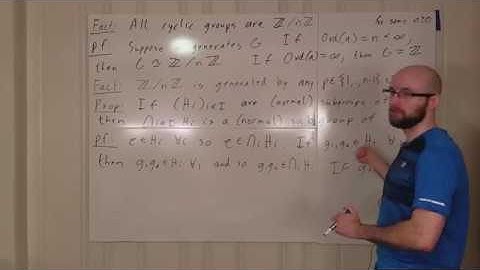 Fact: All cyclic groups are ℤ/nℤ for some n≥0
Pf: Suppose a generates G If Ord(a)=n<∞,
then G≅ℤ/nℤ If Ord(a)=∞, then G≅ℤ
Fact: ℤ/nℤ is generated by any p∈{1,..,n-1}
Prop: If (Hi)i∈I are (normal) subgroups of
then ∩i∈I Hi is a (normal) subgroup of
Pf: e∈Hi ∀i so e∈∩iHi If g1,g2∈Hi ∀
then g1g2∈Hi ∀i and so g1g2∈∩iHi If